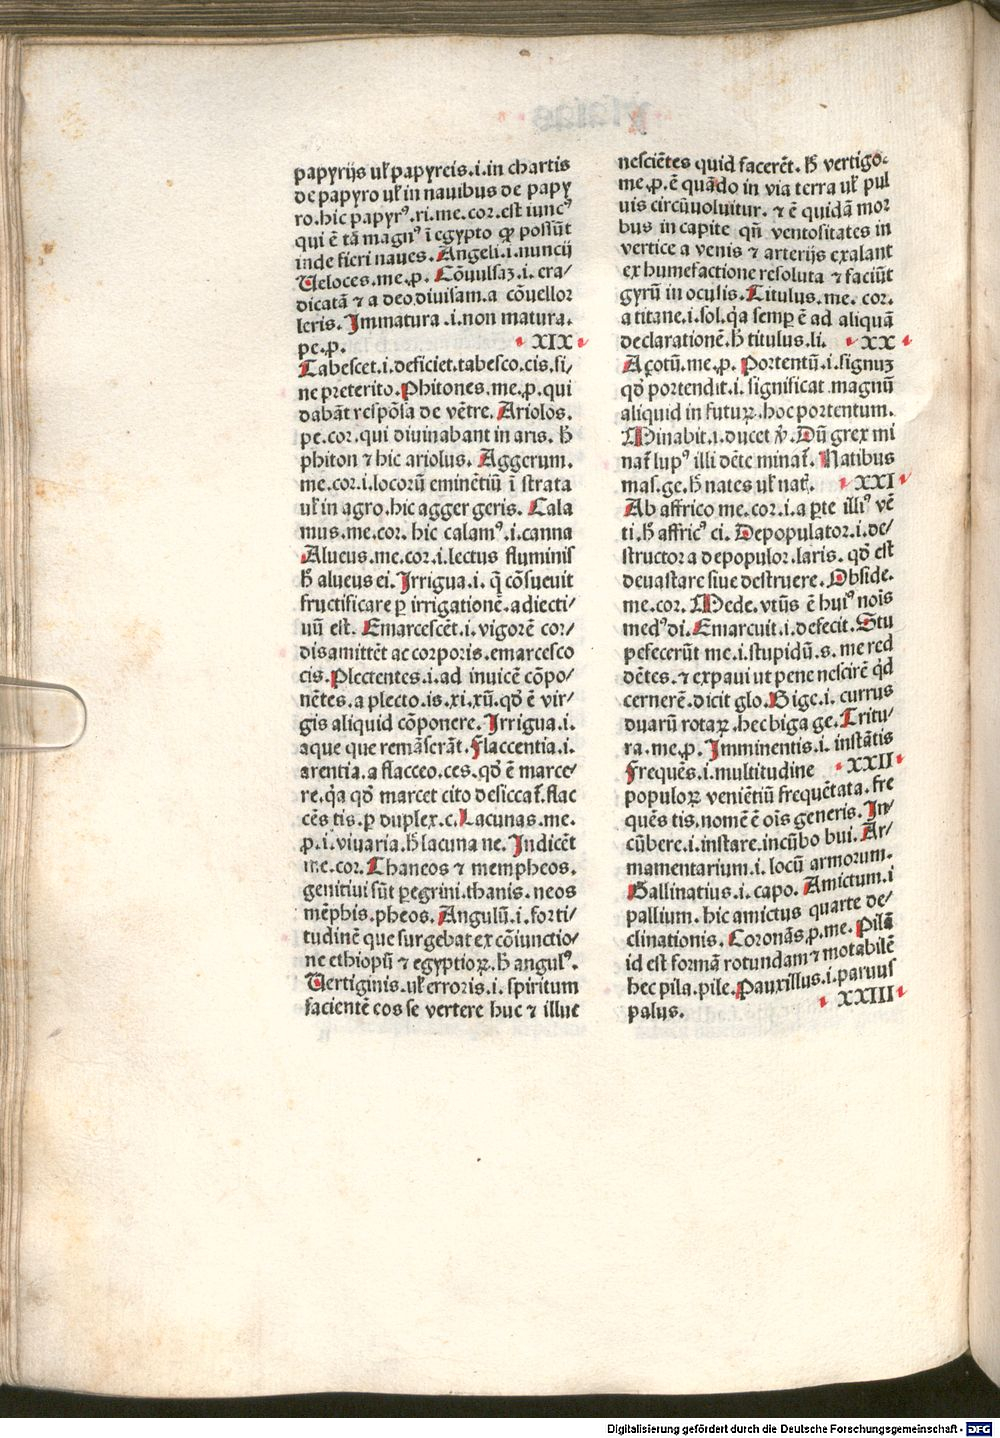 papyrijs ul̄ papyreis.i.in chartis
de papyro ul̄ in nauibus de papy
ro.hic papyrꝰ.ri.me.cor.est iuncꝰ
qui ē tā magnꝰ ī egypto ꝙ possūt
inde fieri naues. Angeli.i.nuncij
Veloces.me.p. Cōuulsaꝫ.i.era/
dicatā ⁊ a deo diuisam.a cōuellor
leris. Immatura.i.non matura.
pe.p. XIX
Tabescet.i.deficiet.tabesco.cis.si/
ne preterito. Phitones.me.p.qui
dabāt respōsa de vētre. Ariolos.
pe.cor.qui diuinabant in aris. h̄
phiton ⁊ hic ariolus. Aggerum.
me.cor.i.locorū eminētiū ī strata
ul̄ in agro.hic agger geris. Cala
mus.me.cor. hic calamꝰ.i.canna
Alueus.me.cor.i.lectus fluminis
h̄ alueus ei. Irrigua.i. q̄ cōsueuit
fructificare ꝑ irrigationē.adiecti/
uū est. Emarcescēt.i.vigorē cor/
dis amittēt ac corporis.emarcesco
cis. Plectentes.i.ad inuicē cōpo/
nētes.a plecto.is.xi.xū.qđ ē vir/
gis aliquid cōponere. Irrigua.i.
aque que remāserāt. Flaccentia.i.
arentia.a flacceo.ces.qđ ē marce/
re.q̄a qđ marcet cito desiccat̄.flac
cēs tis.ꝑ duplex.c. Lacunas.me.
p.i.viuaria.h̄ lacuna ne. Indicēt
me.cor. Thaneos ⁊ mempheos.
genitiui sūt ꝑegrini.thanis.neos
mēphis.pheos. Angulū.i.forti/
tudinē que surgebat ex cōiunctio/
ne ethiopū ⁊ egyptioꝝ. h̄ angulꝰ.
Vertiginis.ul̄ erroris.i. spiritum
facientē eos se vertere huc ⁊ illuc
nesciētes quid facerēt. h̄ vertigo.
me.p.ē quādo in via terra ul̄ pul
uis circūuoluitur. ⁊ ē quidā mor
bus in capite qn̄ ventositates in
vertice a venis ⁊ arterijs exalant
ex humefactione resoluta ⁊ faciūt
gyrū in oculis. Titulus.me. cor.
a titane.i.sol.q̄a semꝑ ē ad aliquā
declarationē.h̄ titulus.li. XX
Açotū.me.p. Portentū.i.signuꝫ
qđ portendit.i.significat magnū
aliquid in futuꝝ.hoc portentum.
Minabit.i.ducet v̓. Dū grex mi
nat̄ lupꝰ illi dēte minat̄. Natibus
mas.ge.h̄ nates ul̄ nat̓. XXI
Ab affrico me.cor.i.a ꝑte illiꝰ vē
ti.h̄ affricꝰ ci. Depopulator.i.de/
structor a depopulor.laris.qđ est
deuastare siue destruere. Obside.
me.cor. Mede.vt̄ūs ē huiꝰ nois
medꝰ di. Emarcuit.i.defecit. Stu
pefecerūt me.i.stupidū.s.me red
dētes.⁊ expaui ut pene nescirē q̓d
cernerē.dicit glo. Bige.i. currus
duarū rotaꝝ.hec biga ge. Tritu/
ra.me.p. Imminentis.i. instātis
Frequēs.i.multitudine XXII
populoꝝ veniētiū frequētata.fre
quēs tis.nomē ē ois generis. In/
cūbere.i.instare.incūbo bui. Ar/
mamentarium.i. locū armorum.
Gallinatius.i.capo. Amictum.i
pallium.hic amictus quarte de/
clinationis. Coronās.p.me. Pilā
id est formā rotundam ⁊ motabilē
hec pila.pile. Pauxillus.i.paruus
palus. XXIII
Digitalisierung gefördert durch die Deutsche Forschungsgemeinschaft - DFG